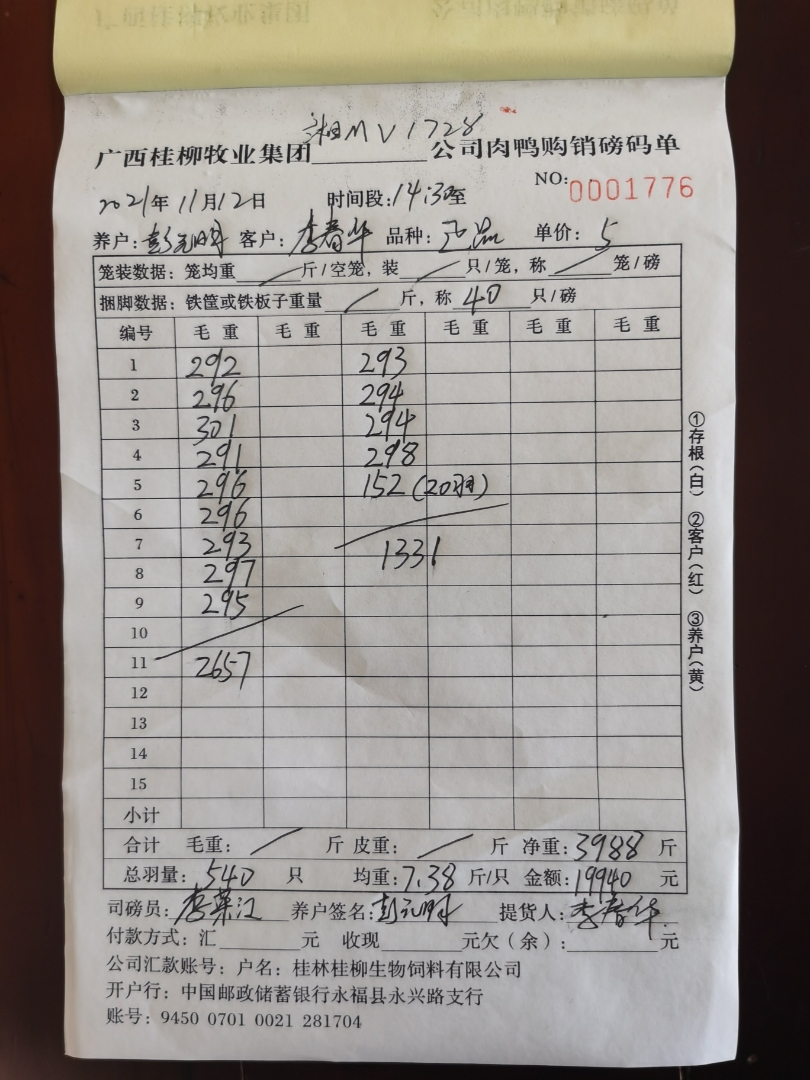 湘MV1728
广西桂柳牧业集团________公司肉鸭购销磅码单
NO:0001776
2021年11月12日 时间段:14:30至
养户:彭元明 客户:李春华 品种:正品 单价:5
笼装数据:笼均重 / 斤/空笼,装 / 只/笼,称 / 笼/磅
捆脚数据:铁筐或铁板子重量 / 斤,称 40 只/磅
编号 毛重 毛重 毛重 毛重 毛重 毛重
1 292 293
2 296 294
3 301 294
4 291 298
5 296 152(20羽)
6 296
7 293 1331
8 297
9 295
10
11 2657
12
13
14
15
小计
合计 毛重: / 斤 皮重: / 斤 净重:3988 斤
总羽量:540 只 均重:7.38 斤/只 金额:19940 元
司磅员: 养户签名:彭元明 提货人:李春华
付款方式:汇______元 收现______元欠(余):______元
公司汇款账号:户名:桂林桂柳生物饲料有限公司
开户行:中国邮政储蓄银行永福县永兴路支行
账号:9450 0701 0021 281704
①存根(白) ②客户(红) ③养户(黄)